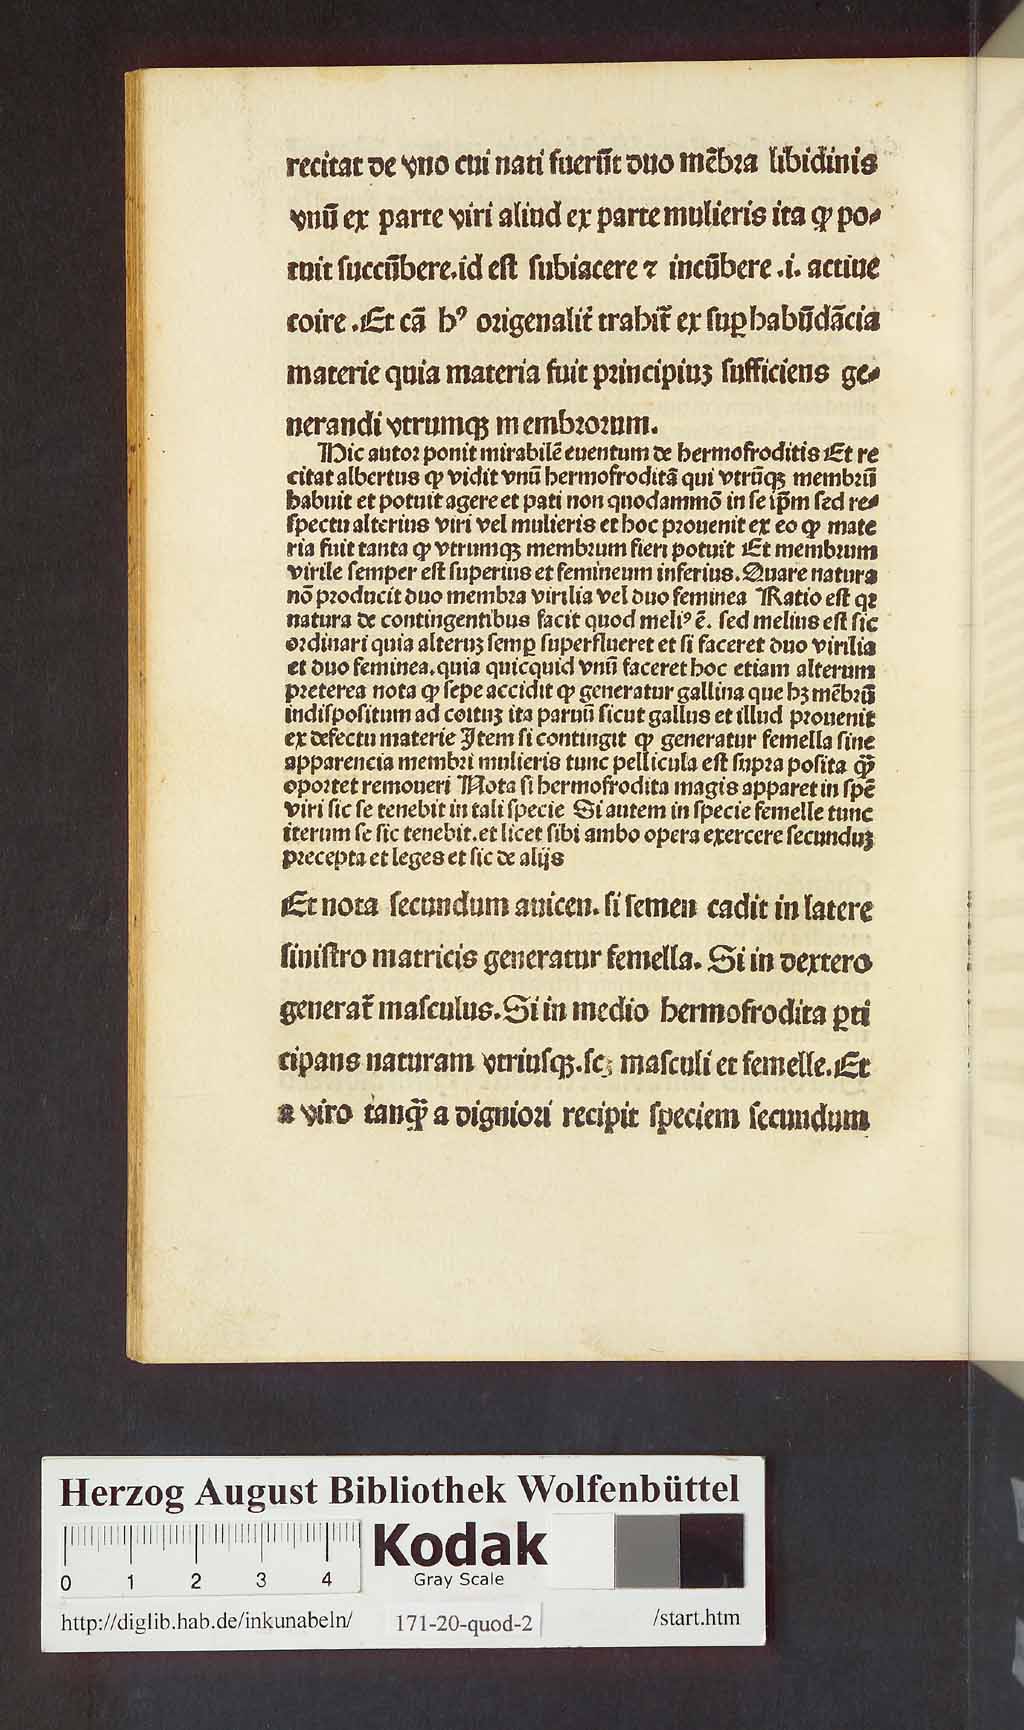 recitat de vno cui nati fuerūt duo mēbra libidinis
vnū ex parte viri aliud ex parte mulieris ita ꝙ po⸗
tuit succūbere.id est subiacere ⁊ incūbere .i. actiue
coire .Et cā hꝰ origenalit̄ trahit̄ ex suꝑhabūdācia
materie quia materia fuit principiuꝫ sufficiens ge⸗
nerandi vtrumqꝫ membrorum.
Hic autor ponit mirabilē euentum de hermofroditis Et re
citat albertus ꝙ vidit vnū hermofroditā qui vtrūqꝫ membrū
habuit et potuit agere et pati non quodammō in se ip̄m sed re⸗
spectu alterius viri vel mulieris et hoc prouenit ex eo ꝙ mate
ria fuit tanta ꝙ vtrumqꝫ membrum fieri potuit Et membrum
virile semper est superius et femineum inferius.Quare natura
nō producit duo membra virilia vel duo feminea Ratio est qꝛ
natura de contingentibus facit quod meliꝰ ē. sed melius est sic
ordinari quia alteruꝫ semꝑ superflueret et si faceret duo virilia
et duo feminea.quia quicquid vnū faceret hoc etiam alterum
preterea nota ꝙ sepe accidit ꝙ generatur gallina que hꝫ mēbrū
indispositum ad coituꝫ ita paruū sicut gallus et illud prouenit
ex defectu materie Item si contingit ꝙ generatur femella sine
apparencia membri mulieris tunc pellicula est supra posita ꝙ̄
oportet remoueri Nota si hermofrodita magis apparet in spē
viri sic se tenebit in tali specie Si autem in specie femelle tunc
iterum se sic tenebit.et licet sibi ambo opera exercere secunduꝫ
precepta et leges et sic de alijs
Et nota secundum auicen. si semen cadit in latere
sinistro matricis generatur femella. Si in dextero
generat̄ masculus.Si in medio hermofrodita ꝑti
cipans naturam vtriusqꝫ.scꝫ masculi et femelle.Et
a viro tanꝙ̄ a digniori recipit speciem secundum
Herzog August Bibliothek Wolfenbüttel
Kodak
Gray Scale
0 1 2 3 4
http://diglib.hab.de/inkunabeln/ 171-20-quod-2 /start.htm